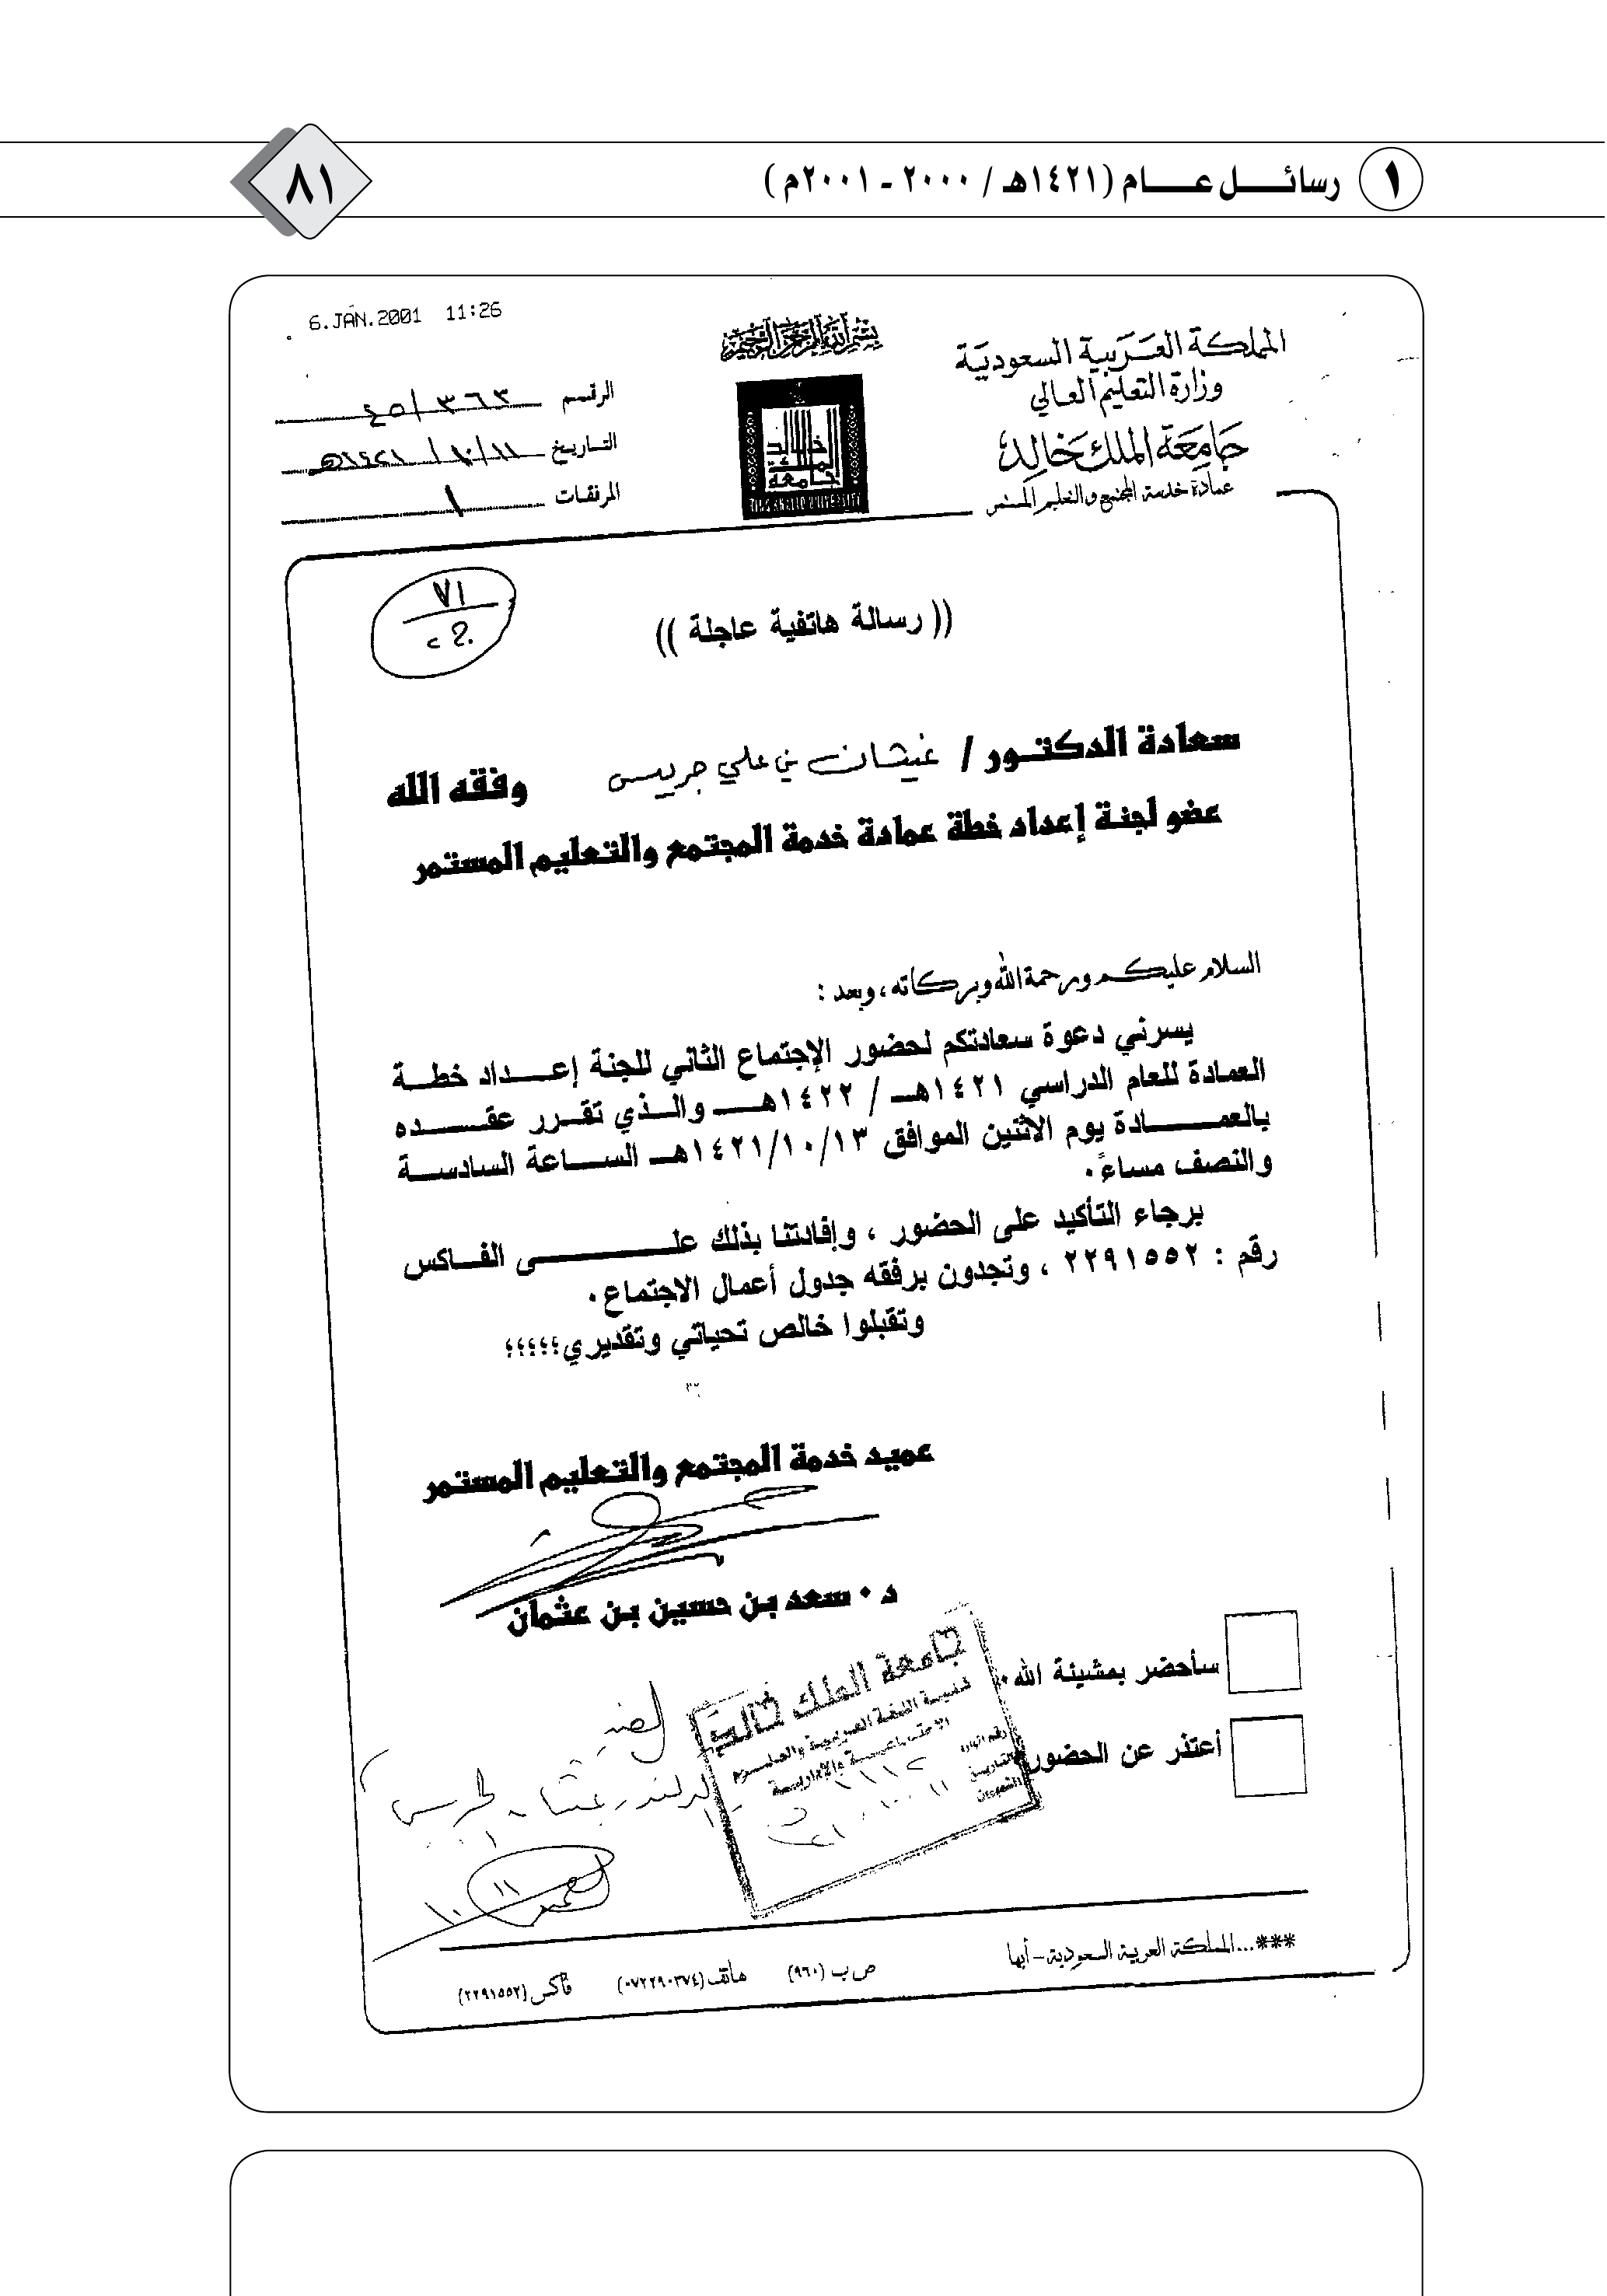 ١ رسائل عام (١٤٢١هـ / ٢٠٠٠ - ٢٠٠١م)
٨١
6.JAN.2001 11:26
بسم الله الرحمن الرحيم
المملكة العربية السعودية
وزارة التعليم العالي
جامعة الملك خالد
عمادة خدمة المجتمع والتعليم المستمر
جامعة الملك خالد
KING KHALID UNIVERSITY
الرقم ٤٥/٣٦٣
التاريخ ١١/١٠/١٤٢١هـ
المرفقات ١
٧١
((رسالة هاتفية عاجلة))
سعادة الدكتور / غيثان بن علي جريس وفقه الله
عضو لجنة إعداد خطة عمادة خدمة المجتمع والتعليم المستمر
السلام عليكم ورحمة الله وبركاته، وبعد :
يسرني دعوة سعادتكم لحضور الإجتماع الثاني للجنة إعداد خطة
العمادة للعام الدراسي ١٤٢١هـ / ١٤٢٢هـ والذي تقرر عقده
بالعمادة يوم الاثنين الموافق ١٤٢١/١٠/١٣هـ الساعة السادسة
والنصف مساءً.
برجاء التأكيد على الحضور ، وإفادتنا بذلك على الفاكس
رقم : ٢٢٩١٥٥٢ ، وتجدون برفقه جدول أعمال الاجتماع.
وتقبلوا خالص تحياتي وتقديري؛؛؛؛؛
عميد خدمة المجتمع والتعليم المستمر
د . سعد بن حسين بن عثمان
سأحضر بمشيئة الله.
أعتذر عن الحضور.
جامعة الملك خالد
كلية اللغة العربية والعلوم
الاجتماعية والإدارية
***...المملكة العربية السعودية - أبها ص ب (٩٦٠) هاتف (٠٧٢٢٩٠٣٧٤) فاكس (٢٢٩١٥٥٢)